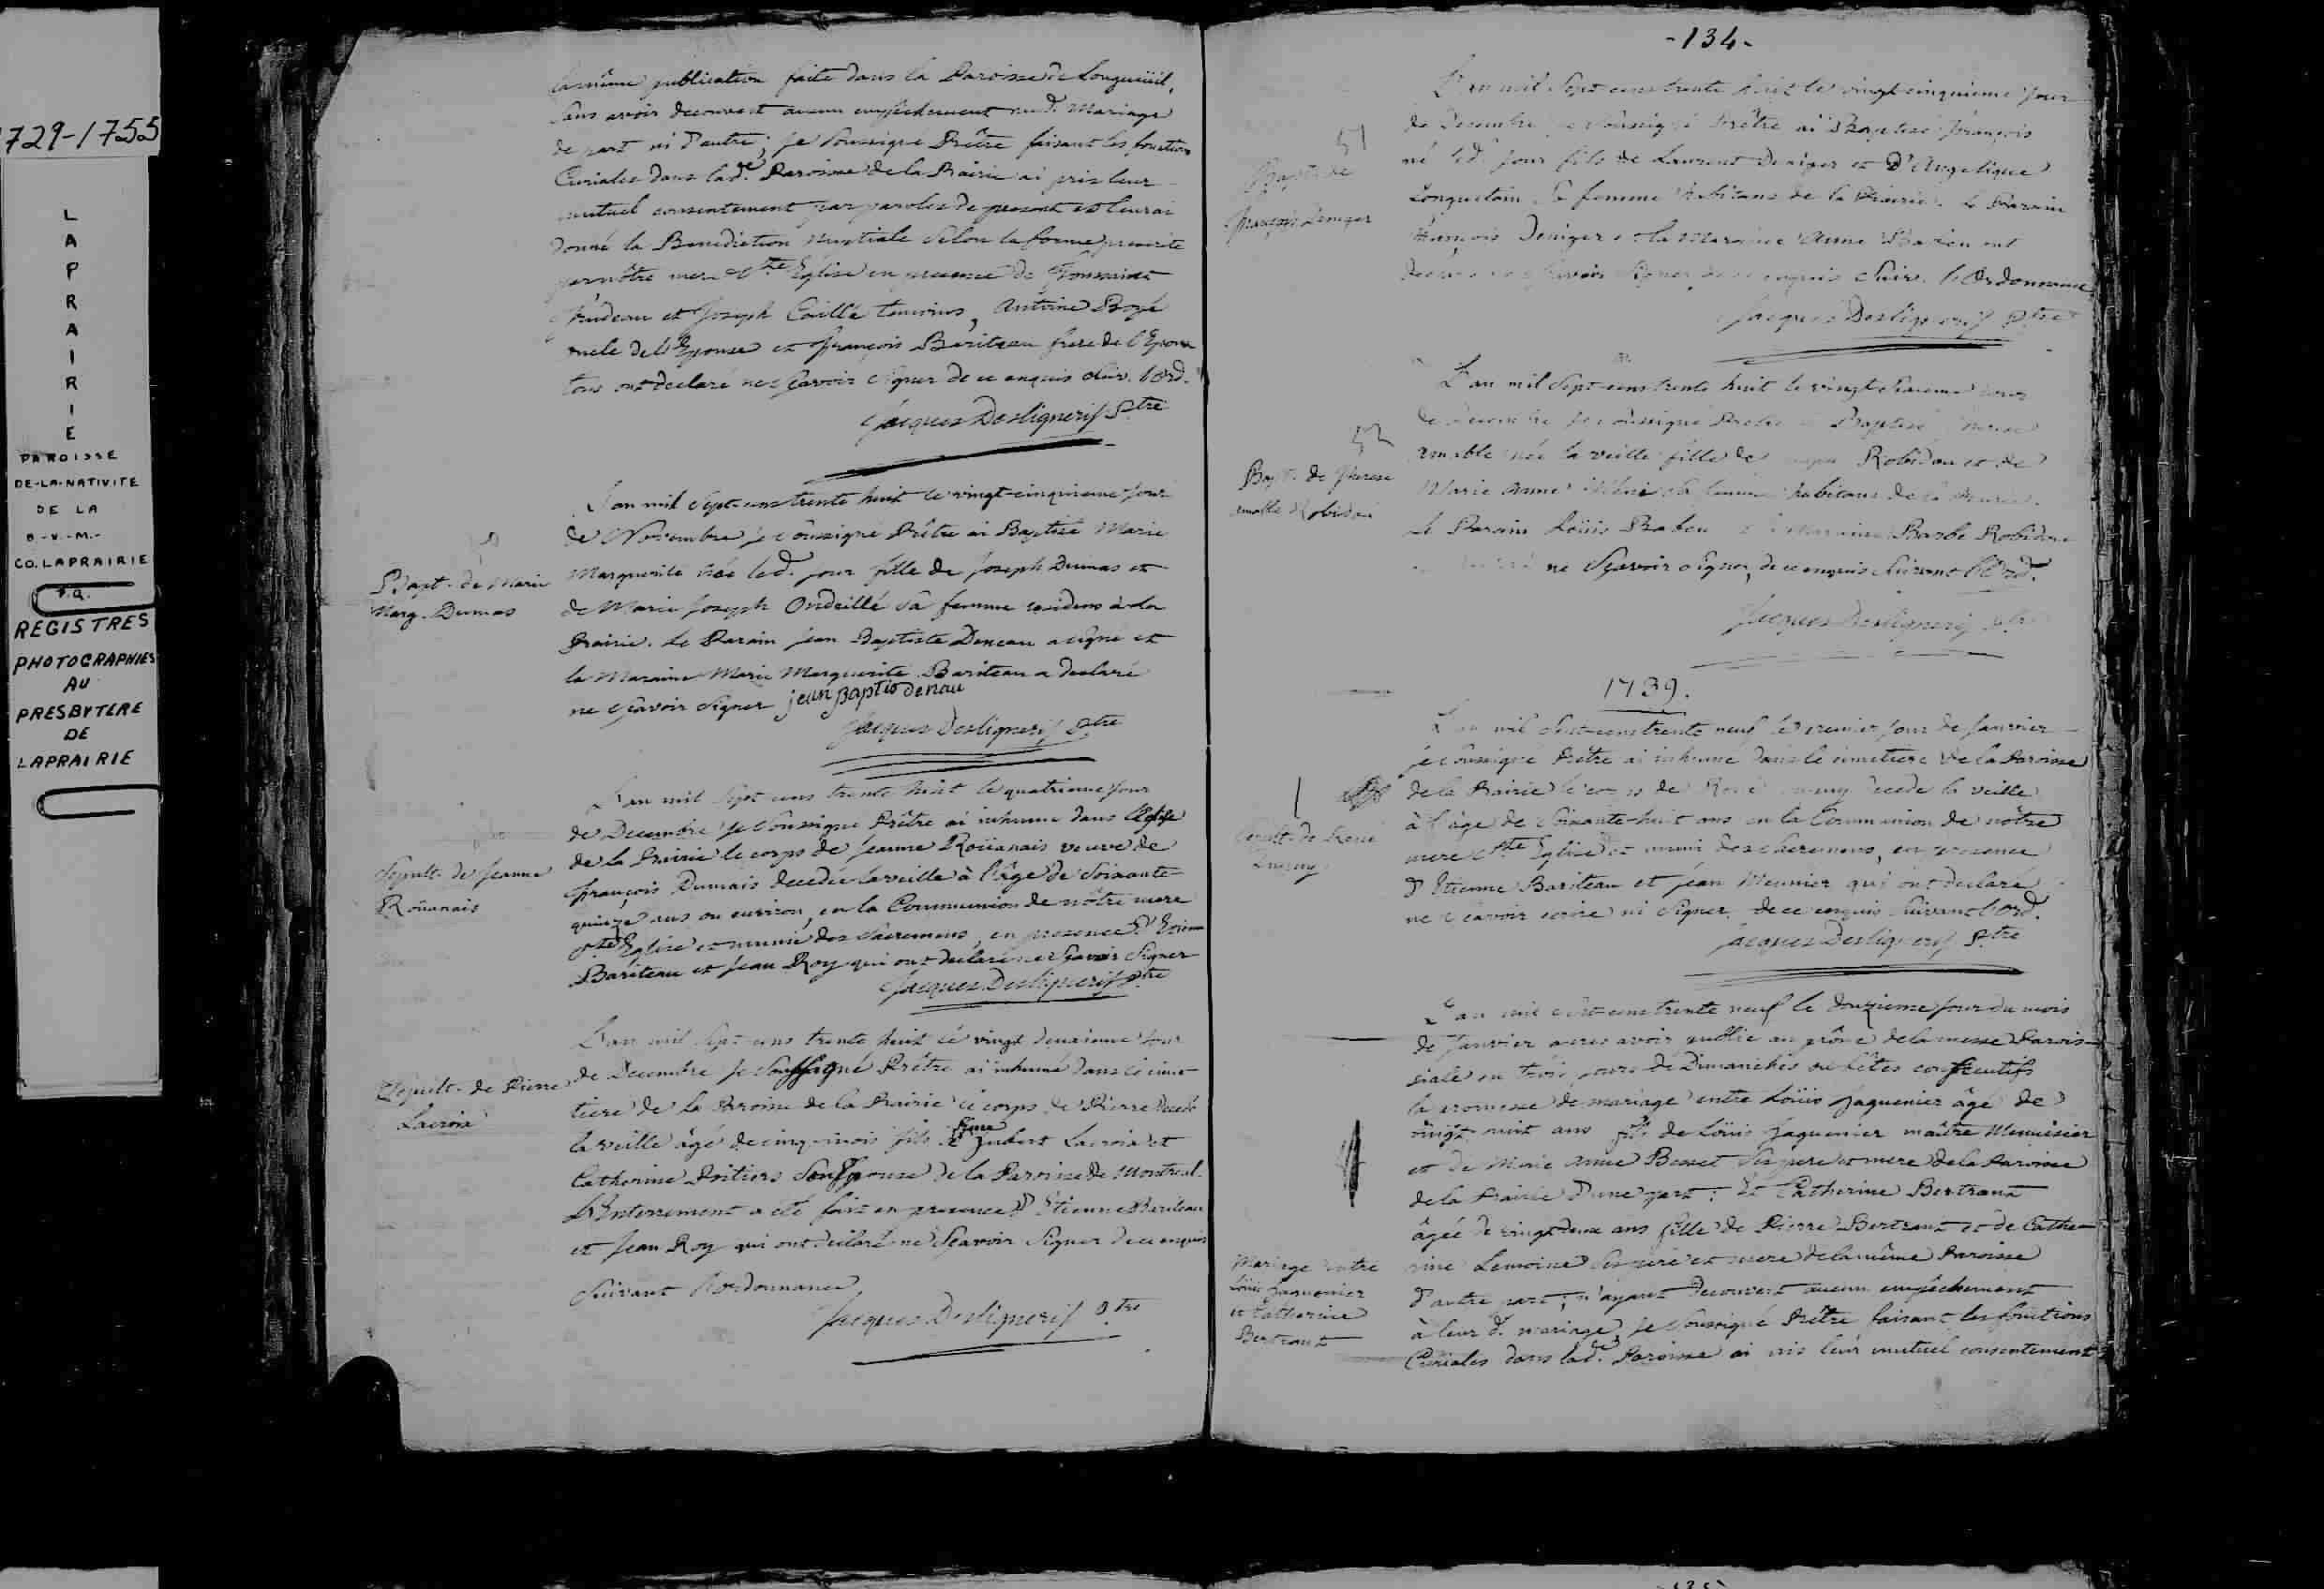 729-1755
LAPRAIRIE
PAROISSE
DE-LA-NATIVITE
DE LA
B.-V.-M.-
CO. LAPRAIRIE
P.Q.
REGISTRES
PHOTOGRAPHIES
AU
PRESBYTERE
DE
LAPRAIRIE
la même publication faite dans la Paroisse de Longueüil,
sans avoir decouvert aucun empêchement aud. Mariage
de part ni d'autre; je soussigné Prêtre faisant les fonctions
Curiales dans lad.e Paroisse de la Prairie ai pris leur
mutuel consentement par paroles de present et leur ai
donné la Benediction Nuptiale selon la forme prescrite
par nôtre mere Ste Eglise en presence de Toussaint
Trudeau et Joseph Caillé temoins, Antoine Boyé
oncle de l'Epouse et François Bariteau frere de l'Epoux
tous ont declaré ne sçavoir signer de ce enquis suiv. l'Ord.
Jacques Desligneris Ptre
Bapt. de Marie
Marg. Dumas
L'an mil sept cens trente huit le vingt-cinquieme jour
de Novembre je soussigné Prêtre ai Baptisé Marie
Marguerite née led. jour fille de Joseph Dumas et
de Marie Joseph Ondeillé sa femme residens à la
Prairie. Le Parain jean Baptiste Deneau a signé et
la Maraine Marie Marguerite Bariteau a declaré
ne sçavoir signer jean Baptis denau
Jacques Desligneris Ptre
Sepult. de Jeanne
Roüanais
L'an mil sept cens trente huit le quatrieme jour
de Decembre je soussigné Prêtre ai inhumé dans l'Eglise
de la Prairie le corps de Jeanne Roüanais veuve de
François Dumais decedée la veille à l'âge de soixante
quinze ans ou environ, en la Communion de nôtre mere
ste Eglise et munie des sacremens, en presence d'Etienne
Bariteau et Jean Roy qui ont declaré ne sçavoir signer
Jacques Desligneris Ptre
Sepult. de Pierre
Lacroix
L'an mil sept cens trente huit le vingt deuxieme jour
de Decembre je soussigné Prêtre ai inhumé dans le cime-
tiere de la Paroisse de la Prairie le corps de Pierre decedé
la veille âgé de cinq mois fils de Hubert Lacroix et
Catherine Poitiers son Epouse de la Paroisse de Montreal.
L'Enterrement a été fait en presence d'Etienne Bariteau
et Jean Roy qui ont declaré ne sçavoir signer de ce enquis
suivant l'ordonnance
Jacques Desligneris Ptre
-134-
51
Bapt. de
François Deniger
L'an mil sept cens trente huit le vingt cinquieme jour
de Decembre je soussigné Prêtre ai Baptisé François
né led. jour fils de Laurent Deniger et d'Angelique
Longuetain sa femme habitans de la Prairie. Le Parain
François Deniger et la Maraine Anne Babeu ont
declaré ne sçavoir signer de ce enquis suiv. l'Ordonnance
Jacques Desligneris Ptre
52
Bapt. de Therese
amable Robidou
L'an mil sept cens trente huit le vingt sixieme jour
de Decembre je soussigné Prêtre ai Baptisé Therese
amable née la veille fille de Robidou et de
Marie Anne sa femme habitans de la Prairie.
Le Parain Loüis Babeu et la Maraine Barbe Robidou
ne sçavoir signer, de ce enquis suivant l'Ord.
Jacques Desligneris Ptre
1739.
1
Sepult. de René
L'an mil sept cens trente neuf le premier jour de Janvier
je soussigné Prêtre ai inhumé dans le cimetiere de la Paroisse
de la Prairie le corps de René decedé la veille
à l'âge de soixante-huit ans en la Communion de nôtre
mere Ste Eglise et muni des sacremens, en presence
d'Etienne Bariteau et jean Meunier qui ont declaré
ne sçavoir ecrire ni signer de ce enquis suivant l'Ord.
Jacques Desligneris Ptre
L'an mil sept cens trente neuf le douzieme jour du mois
de Janvier apres avoir publié au prône de la messe Parois-
siale en trois jours de Dimanches ou Fêtes consecutifs
la promesse de mariage entre Loüis Jaquenier âgé de
vingt huit ans fils de Loüis Jaquenier maître Menuisier
et de Marie Anne Besset ses pere et mere de la Paroisse
de la Prairie d'une part; Et Catherine Bertrant
âgée de vingt deux ans fille de Pierre Bertrant et de Cathe-
rine Lemoine ses pere et mere de la même Paroisse
d'autre part; n'ayant decouvert aucun empêchement
à leur d. mariage, je soussigné Prêtre faisant les fonctions
Curiales dans lad.e Paroisse ai pris leur mutuel consentement
Mariage entre
Loüis Jaquenier
et Catherine
Bertrant